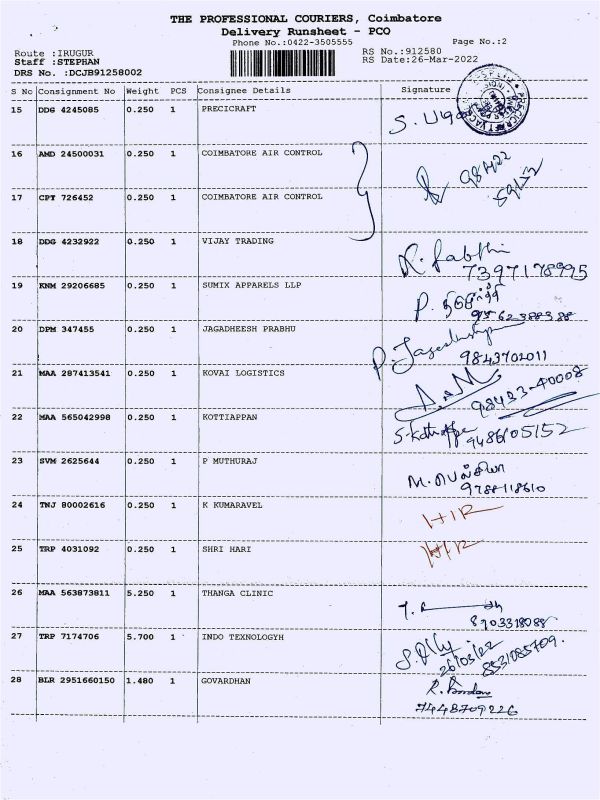 THE PROFESSIONAL COURIERS, Coimbatore
Delivery Runsheet - PCO
Phone No.:0422-3505555 Page No.:2
Route :IRUGUR RS No.:912580
Staff :STEPHAN RS Date:26-Mar-2022
DRS No. :DCJB91258002
S No Consignment No Weight PCS Consignee Details Signature
15 DDG 4245085 0.250 1 PRECICRAFT
16 AMD 24500031 0.250 1 COIMBATORE AIR CONTROL
17 CPT 726452 0.250 1 COIMBATORE AIR CONTROL
18 DDG 4232922 0.250 1 VIJAY TRADING
7397178995
19 KNM 29206685 0.250 1 SUMIX APPARELS LLP
20 DPM 347455 0.250 1 JAGADHEESH PRABHU
9843702011
21 MAA 287413541 0.250 1 KOVAI LOGISTICS
98433-40008
22 MAA 565042998 0.250 1 KOTTIAPPAN
9486105152
23 SVM 2625644 0.250 1 P MUTHURAJ
9788118610
24 TNJ 80002616 0.250 1 K KUMARAVEL
25 TRP 4031092 0.250 1 SHRI HARI
26 MAA 563873811 5.250 1 THANGA CLINIC
8903318088
27 TRP 7174706 5.700 1 INDO TEXNOLOGYH
26/03/22 8531085709.
28 BLR 2951660150 1.480 1 GOVARDHAN
7448709226